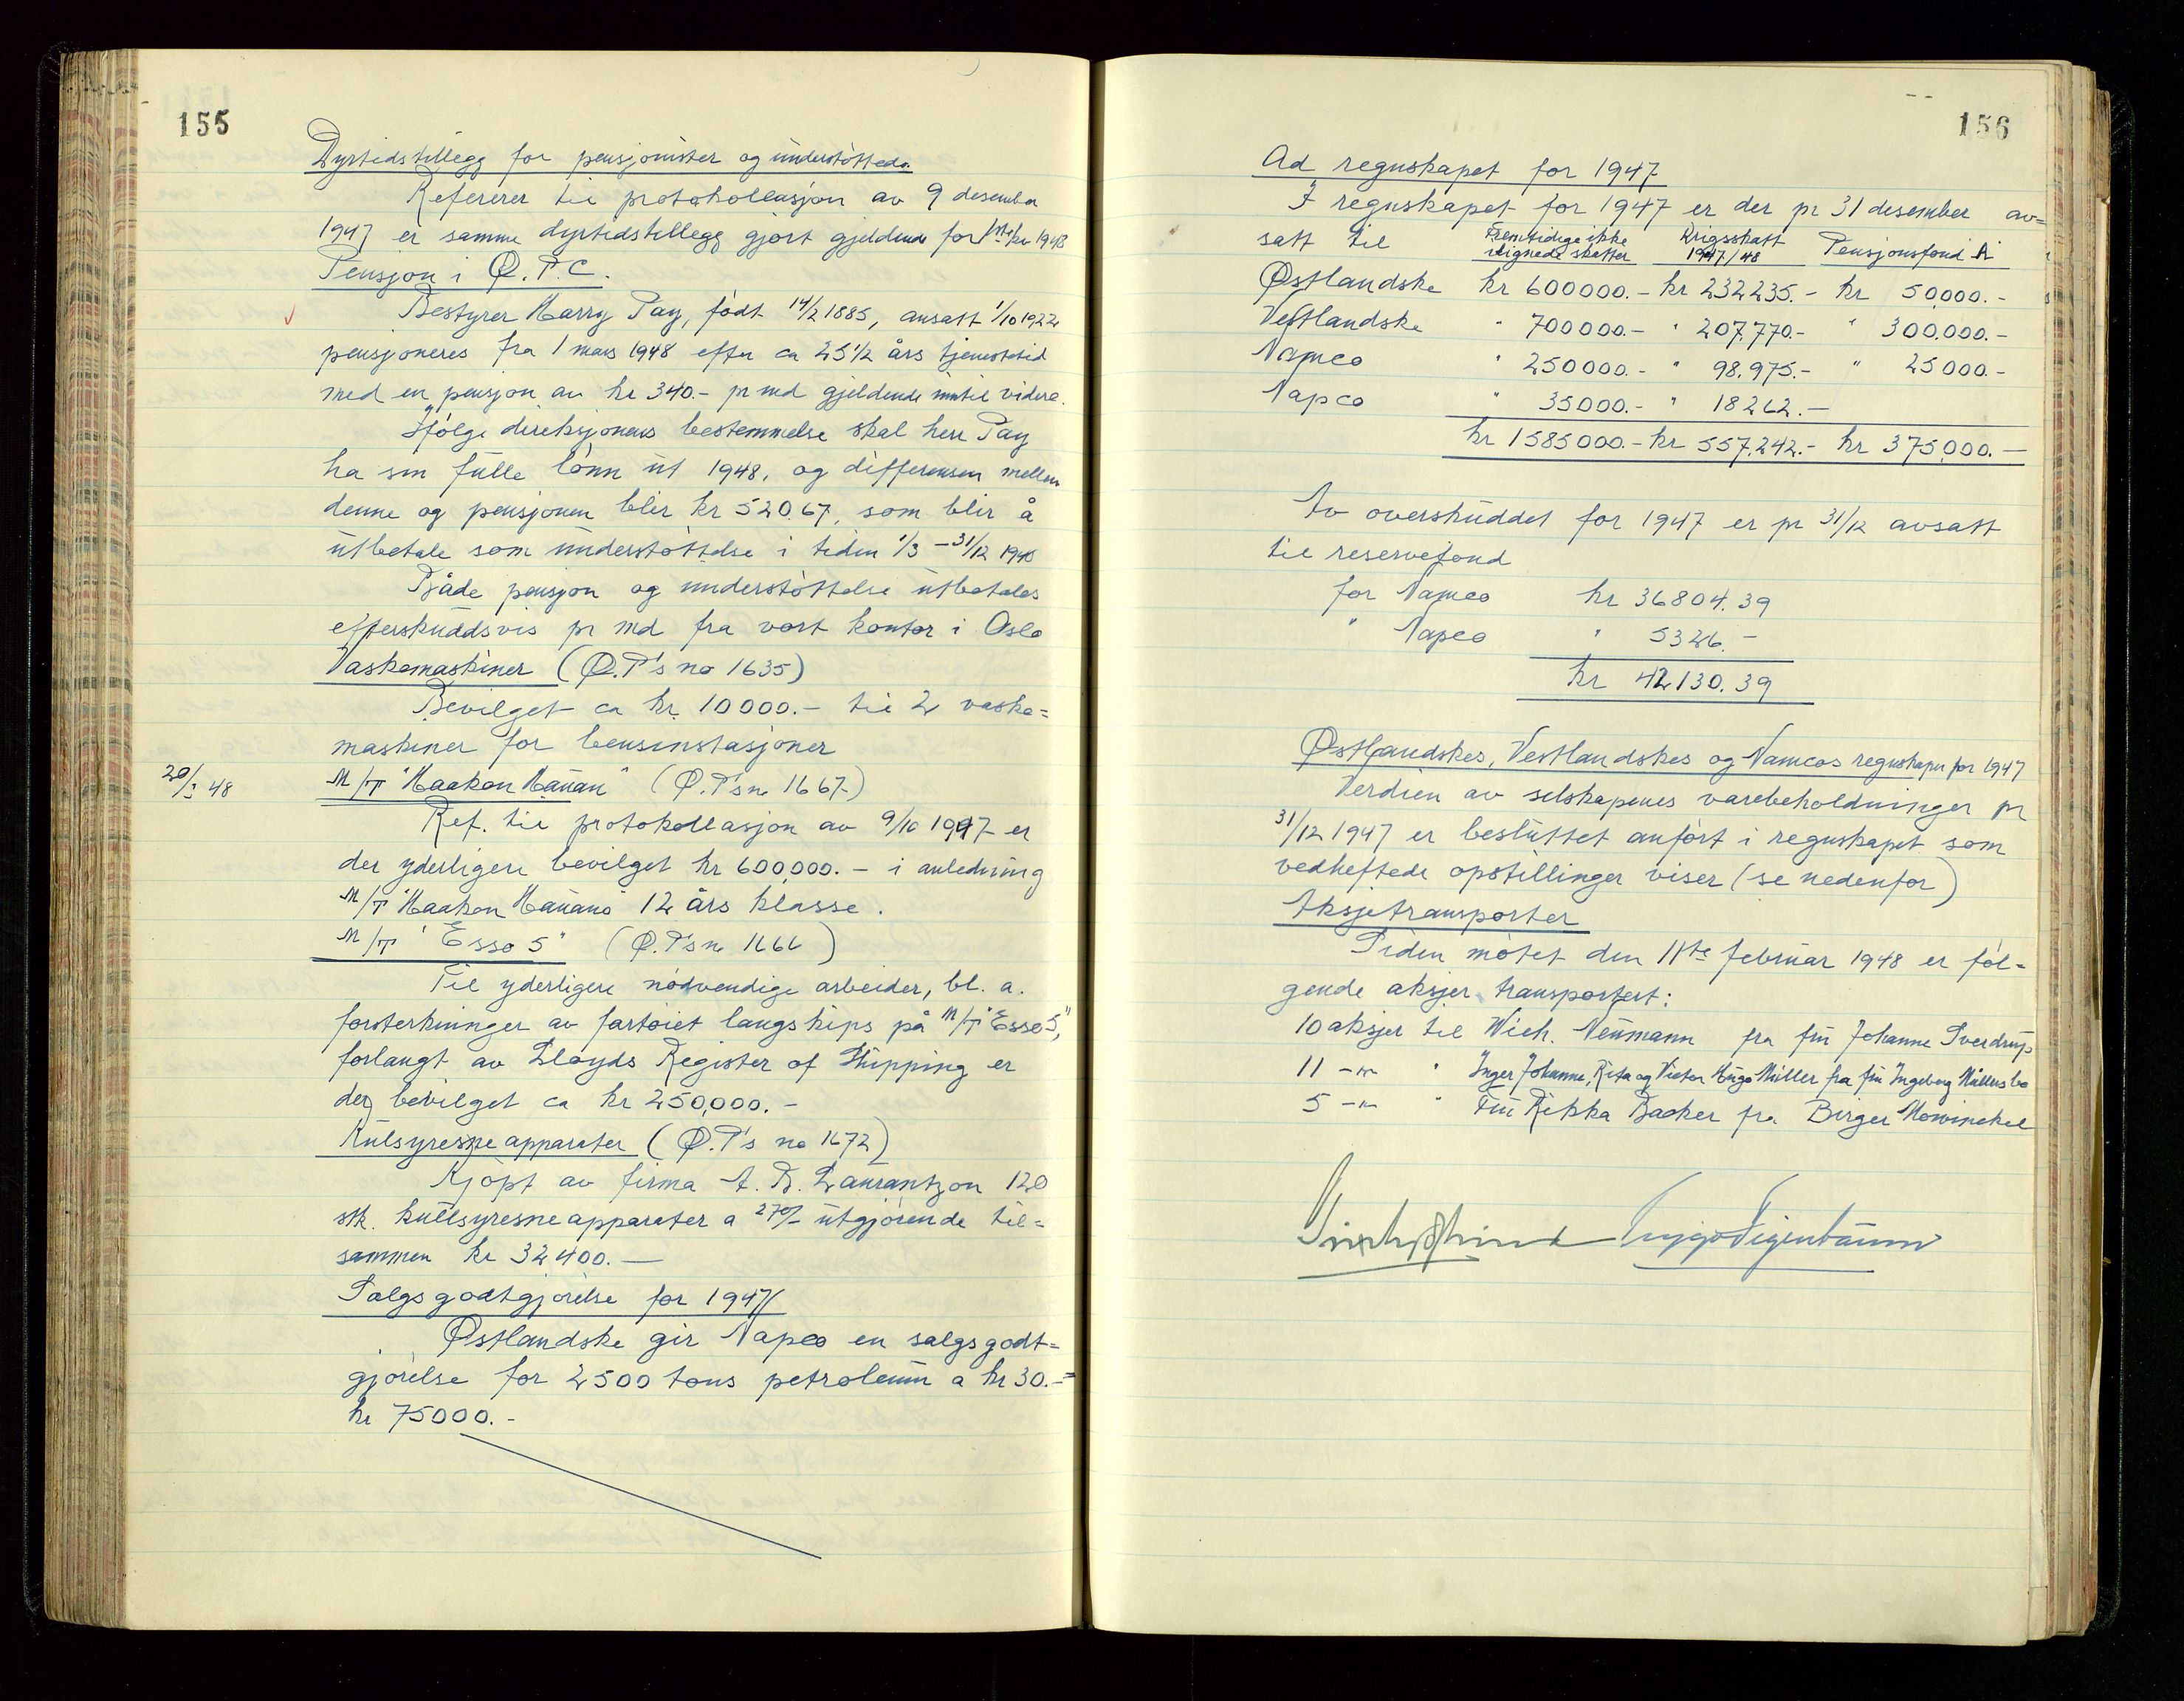 155
Dyrtidstillegg for pensjonister og understöttede.
Refererer til protokollasjon av 9 desember
1947 er samme dyrtidstillegg gjort gjeldende for 1ste kv 1948
Pensjon i Ø.P.C.
Bestyrer Harry Pay, födt 14/2 1885, ansatt 1/10 1922
pensjoneres fra 1 mars 1948 efter ca 25 1/2 års tjenestetid
med en pensjon av kr 340.- pr md gjeldende inntil videre.
Ifölge direksjonens bestemmelse skal herr Pay
ha sin fulle lönn ut 1948, og differensen mellem
denne og pensjonen blir kr 520.67, som blir å
utbetale som understöttelse i tiden 1/3 - 31/12 1948
Både pensjon og understöttelse utbetales
efterskuddsvis pr md fra vort kontor i Oslo
Vaskemaskiner (Ø.P's no 1635)
Bevilget ca kr 10000.- til 2 vaske=
maskiner for bensinstasjoner
20/2 48
M/T "Haakon Hauan" (Ø.P's no 1667)
Ref. til protokollasjon av 9/10 1947 er
der yderligere bevilget kr 600,000.- i anledning
M/T "Haakon Hauans" 12 års klasse.
M/T "Esso 5" (Ø.P's no 1666)
Til yderligere nödvendige arbeider, bl. a.
forsterkninger av fartöiet langskips på M/T "Esso 5",
forlangt av Lloyds Register of Shipping er
der bevilget ca kr 250,000.-
Kulsyresneapparater (Ø.P's no 1672)
Kjöpt av firma A. B. Laurantzon 120
stk. kullsyresneapparater a 270/- utgjörende til=
sammen kr 32400.—
Salgsgodtgjörelse for 1947
Østlandske gir Napco en salgsgodt=
gjörelse for 2500 tons petroleum a kr 30.- =
kr 75000.-
156
Ad regnskapet for 1947
I regnskapet for 1947 er der pr 31 desember av=
satt til Fremtidige ikke utlignede skatter Krigsskatt 1947/48 Pensjonsfond A
Østlandske kr 600000.- kr 232235.- kr 50,000.-
Vestlandske " 700000.- " 207.770- " 300,000.-
Namco " 250000.- " 98.975.- " 25000.-
Napco " 35000.- " 18262.—
kr 1585000.- kr 557.242.- kr 375,000.—
Av overskuddet for 1947 er pr 31/12 avsatt
til reservefond
for Namco kr 36804.39
" Napco " 5326.-
kr 42130.39
Østlandskes, Vestlandskes og Namcos regnskaper for 1947
Verdien av selskapenes varebeholdninger pr
31/12 1947 er besluttet anfört i regnskapet som
vedheftede opstillinger viser (se nedenfor)
Aksjetransporter
Siden mötet den 11te februar 1948 er föl-
gende aksjer transportert:
10 aksjer til Wich. Neumann fra fru Johanne Sverdrup
11 -"- " Inger Johanne, Rita og Victor Hugo Müller fra fru Ingeborg Müllers bo
5 -"- " Fru Rikka Backer fra Birger Mowinckel